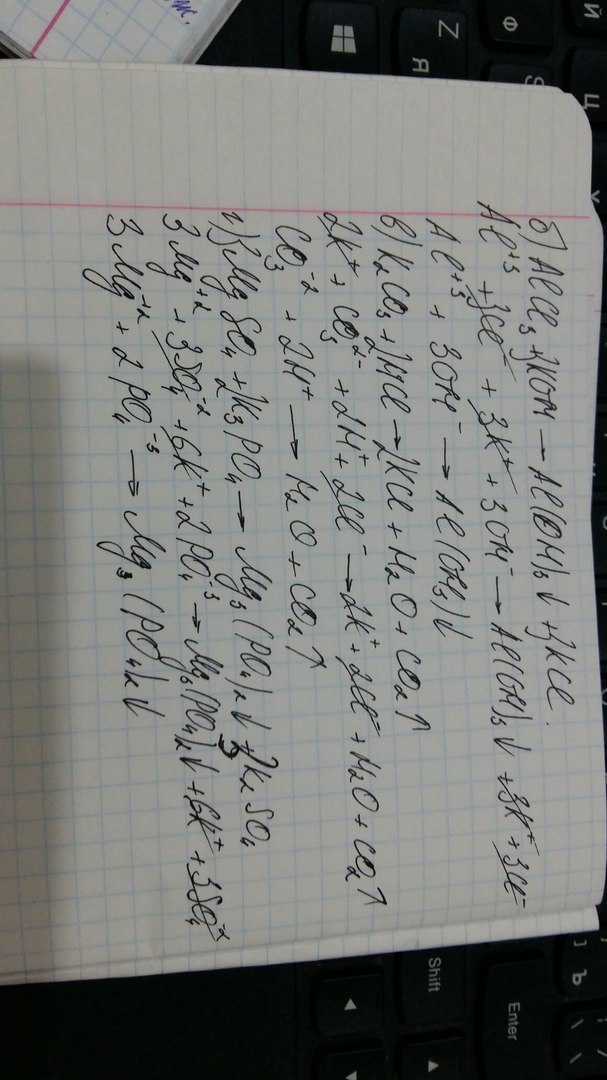 б) AlCl₃ + 3KOH → Al(OH)₃↓ + 3KCl.
Al⁺³ + 3Cl⁻ + 3K⁺ + 3OH⁻ → Al(OH)₃↓ + 3K⁺ + 3Cl⁻
Al⁺³ + 3OH⁻ → Al(OH₃)↓
в) K₂CO₃ + 2HCl → 2KCl + H₂O + CO₂↑
2K⁺ + CO₃²⁻ + 2H⁺ + 2Cl⁻ → 2K⁺ + 2Cl⁻ + H₂O + CO₂↑
CO₃⁻² + 2H⁺ → H₂O + CO₂↑
г) 3MgSO₄ + 2K₃PO₄ → Mg₃(PO₄)₂↓ + 3K₂SO₄
3Mg⁺² + 3SO₄⁻² + 6K⁺ + 2PO₄⁻³ → Mg₃(PO₄)₂↓ + 6K⁺ + 3SO₄⁻²
3Mg⁺² + 2PO₄⁻³ → Mg₃(PO₄)₂↓
Z
Я
Ф
Й
Ц
Shift
Enter
]
Ъ
\